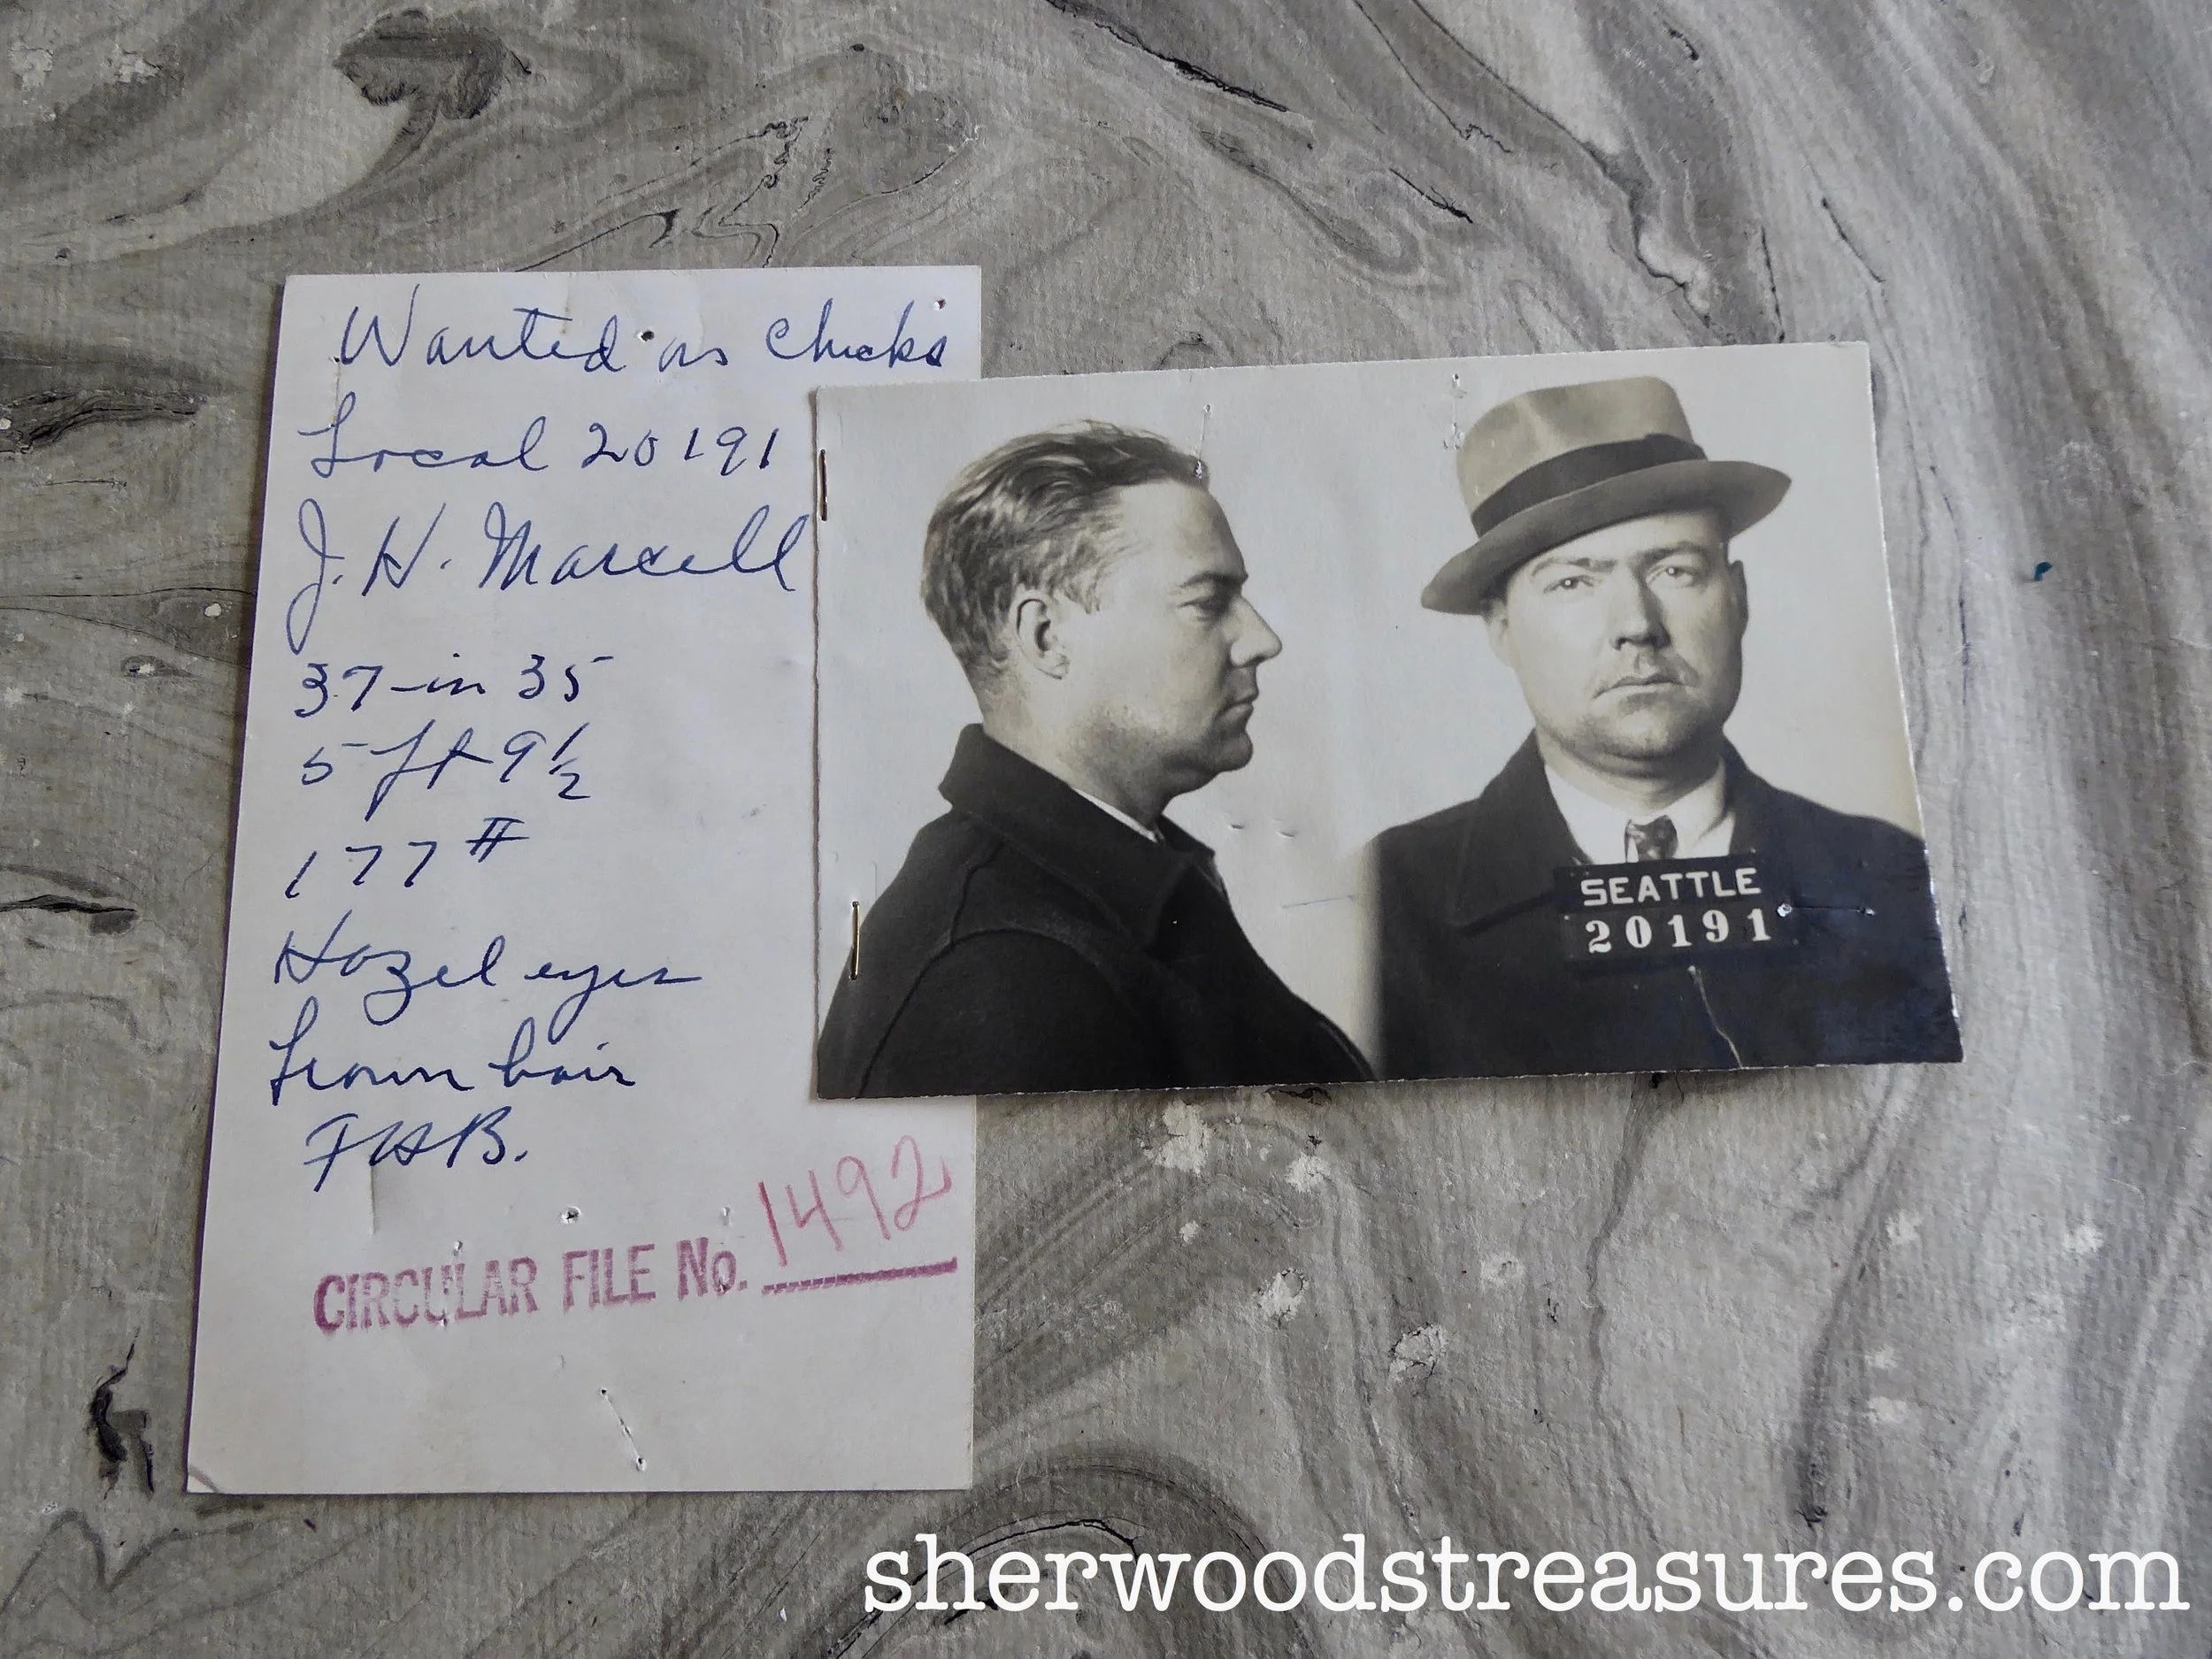 Wanted on Checks
Local 20191
J. H. Marcell
37 in 35
5 ft 9 1/2
177 #
Hazel eyes
brown hair
FHB.
CIRCULAR FILE No. 1492
SEATTLE
20191
sherwoodstreasures.com